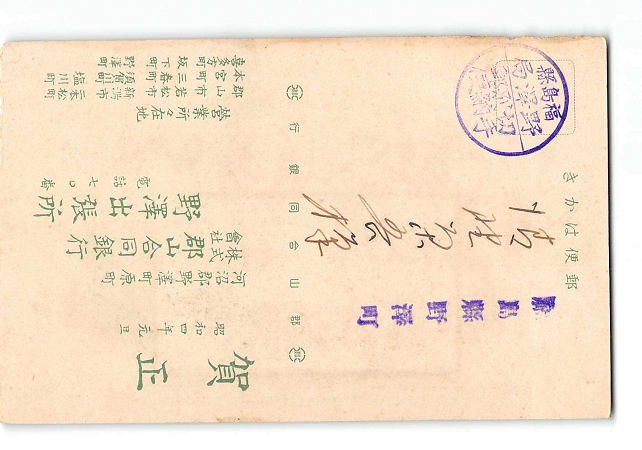 郵便はかき
福島縣
野澤局
切手別納
島縣野澤町
郡山合同銀行
賀正
昭和四年元旦
河沼郡野澤町原町
株式會社 郡山合同銀行
野澤出張所
電話七〇番
營業所々在地
郡山市 若松市 新潟市 二本松町
本宮町 三春町 須賀川町 塩川町
喜多方町 坂下町 野澤町